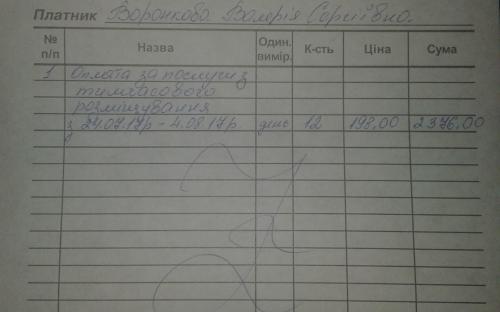 Платник Воронкова Валерія Сергіївна.
№ п/п Назва Один. вимір. К-сть Ціна Сума
1 Оплата за послуги з
тимчасового
розміщування
з 24.07.17р - 4.08.17р. день 12 198,00 2376,00